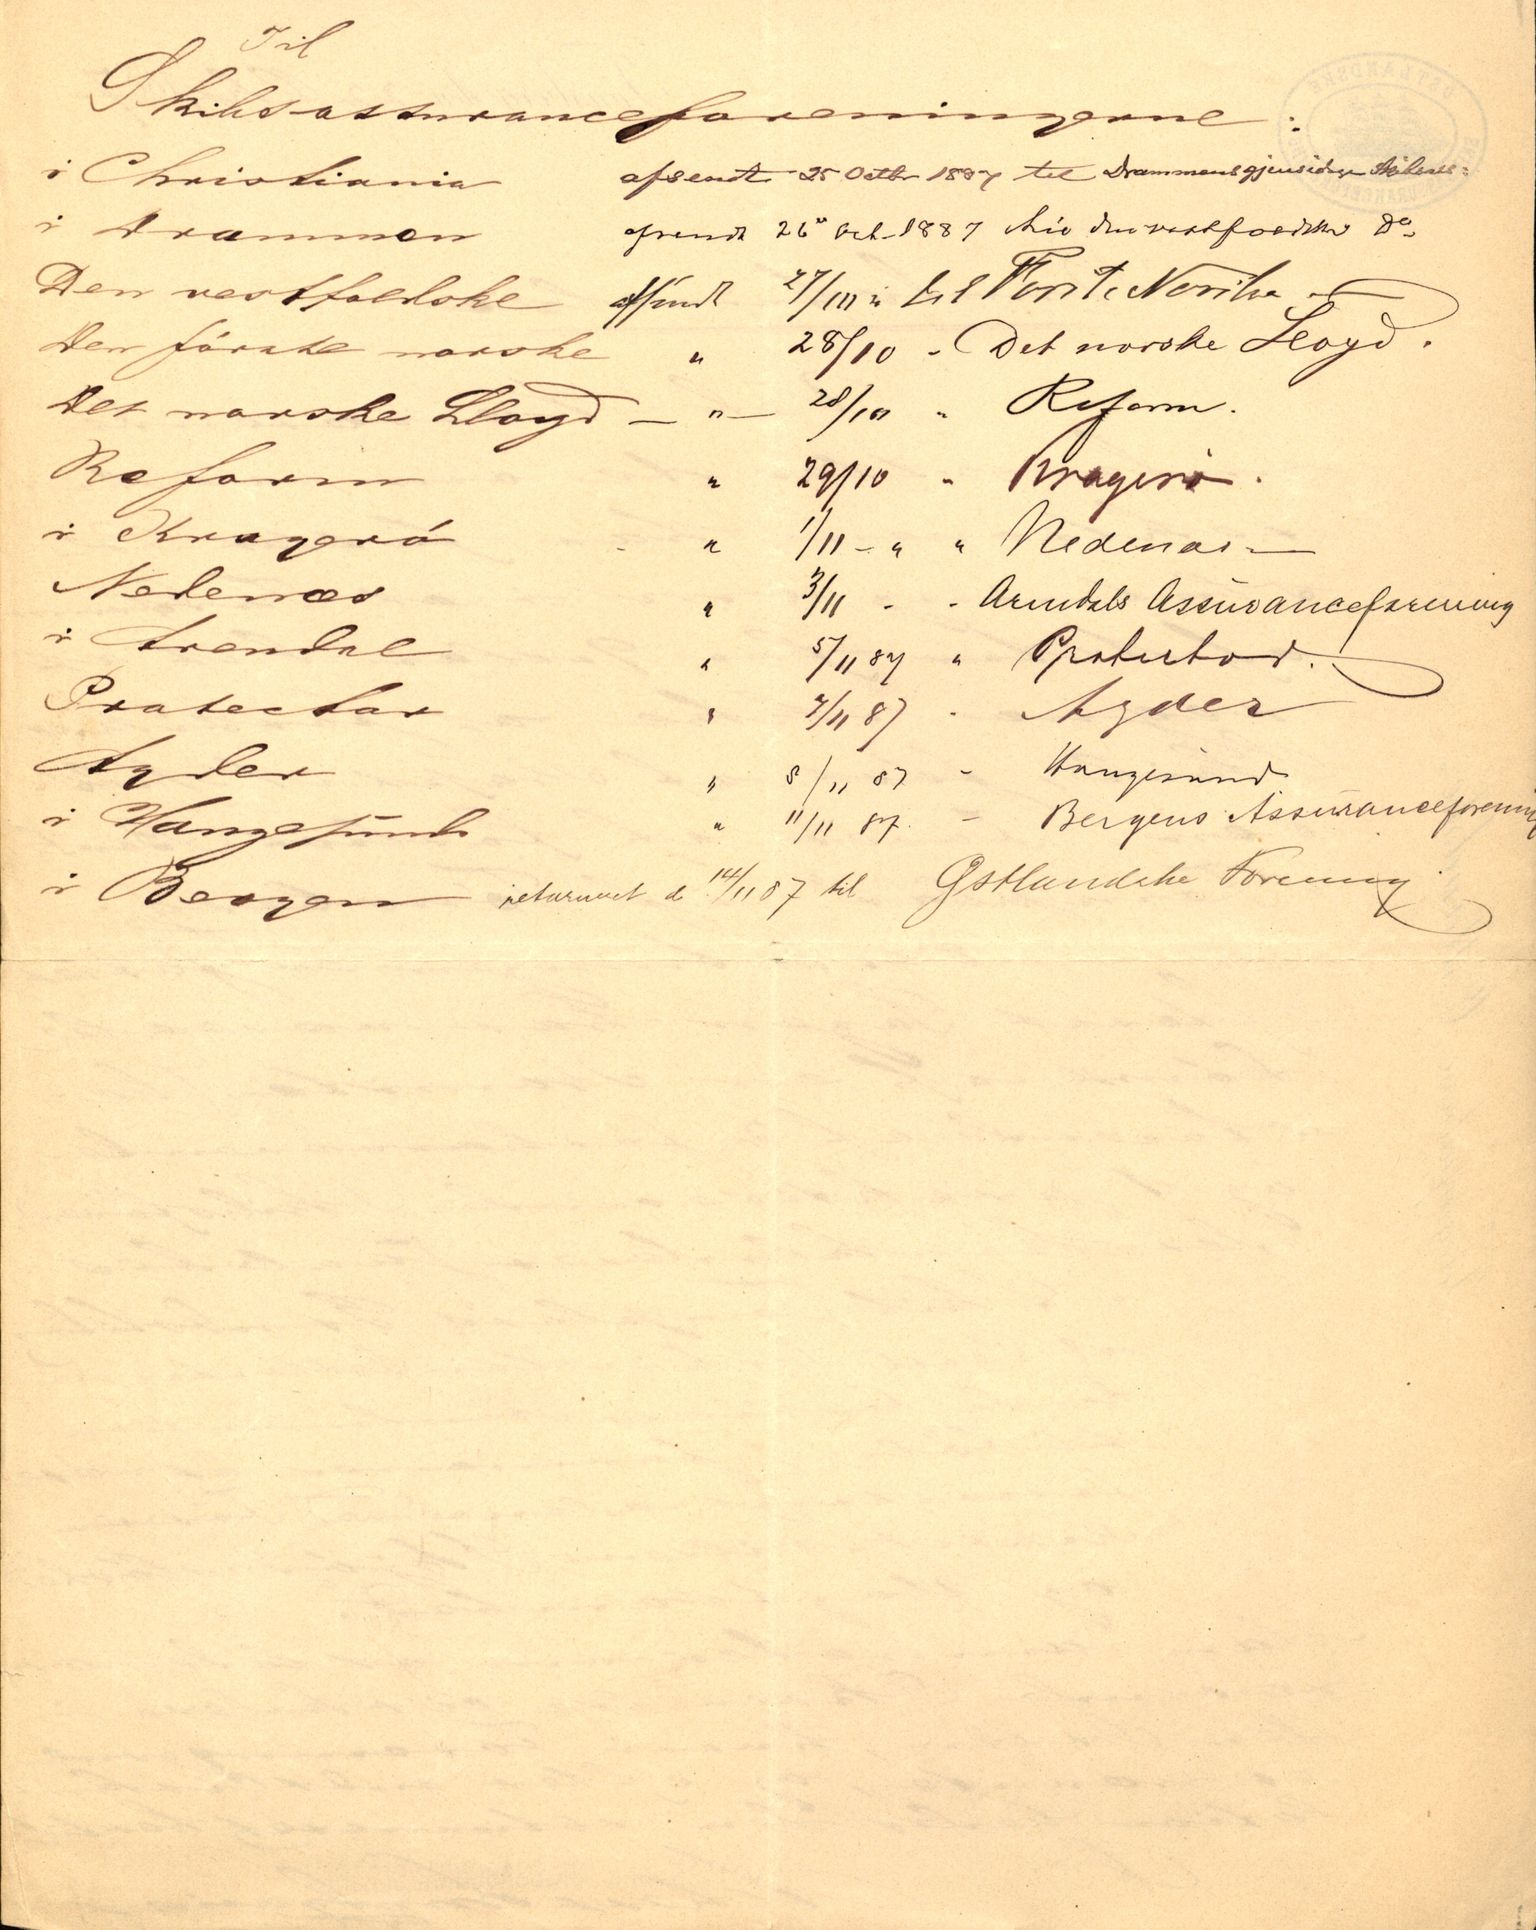 Til
Skibsassuranceforeningerne:
i Christiania afsendt 25 Octbr 1887 til Drammens gjensidige
i Drammen afsendt 26 Oct. 1887 den vestfoldske Do
Den vestfoldske afsendt 27/10 " til Første Norske
Den første norske " 28/10 - Det norske Lloyd.
Det norske Lloyd — " — 28/10 " Reform.
Reform " 29/10 " Kragerø.
i Kragerø " 1/11 - " " Nedenæs
Nedenæs " 3/11 - - Arendals Assuranceforening
i Arendal " 5/11 87 " Protector.
Protector " 7/11 87 - Agder
Agder " 8/11 87 - Haugesund
i Haugesund " 11/11 87. - Bergens Assuranceforening
i Bergen returneret d 14/11 87 til Østlandske Forening